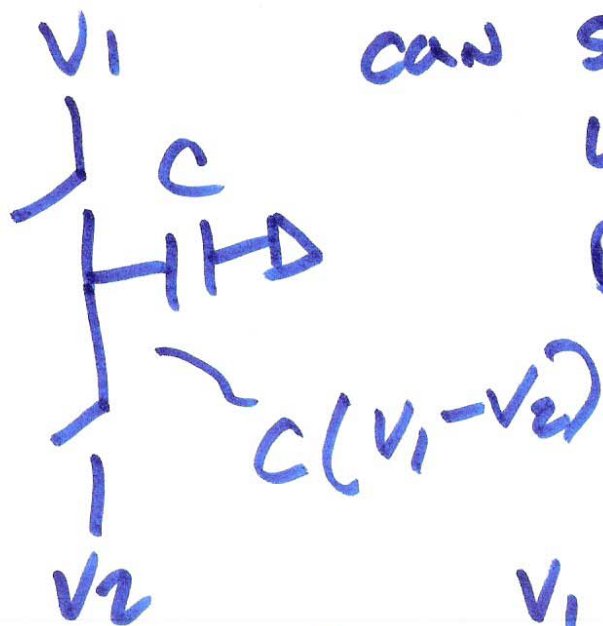 V1
can
C
C(V1-V2)
V2
V1